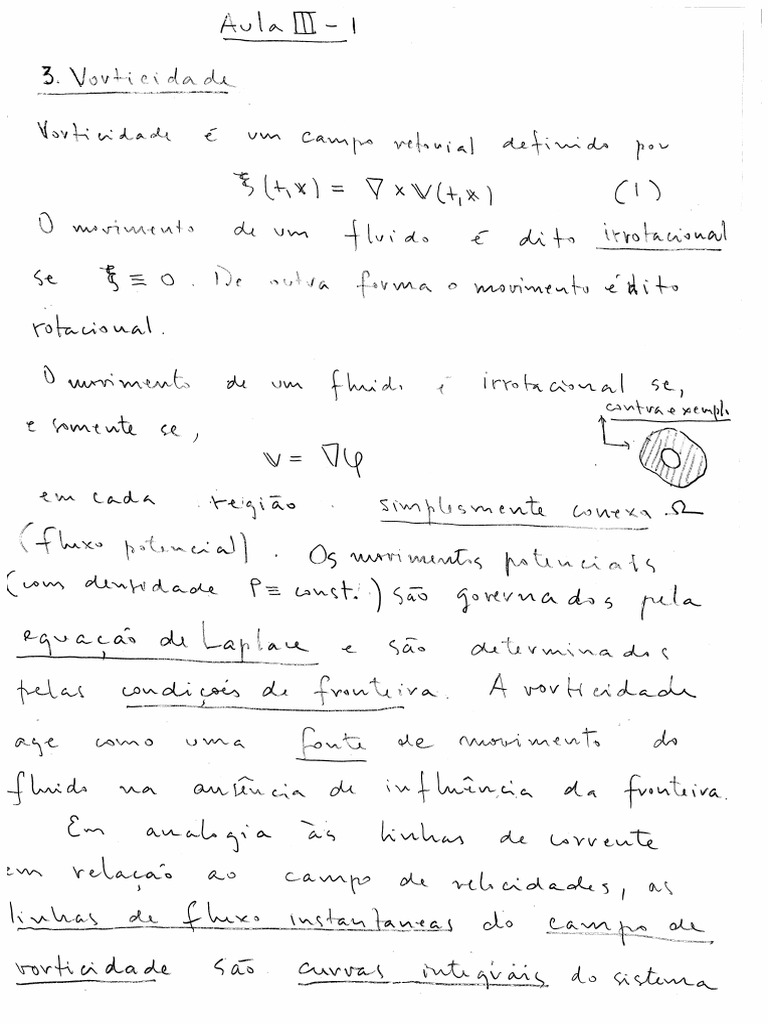 Aula III - 1
3. Vorticidade
Vorticidade é um campo vetorial definido por
ξ(t,x) = ∇ × V(t,x) (1)
O movimento de um fluido é dito irrotacional
se ξ ≡ 0. De outra forma o movimento é dito
rotacional.
O movimento de um fluido é irrotacional se,
e somente se,
contraexemplo
V = ∇φ
em cada região simplesmente conexa Ω
(fluxo potencial). Os movimentos potenciais
(com densidade ρ ≡ const.) são governados pela
equação de Laplace e são determinados
pelas condições de fronteira. A vorticidade
age como uma fonte de movimento do
fluido na ausência de influência da fronteira.
Em analogia às linhas de corrente
em relação ao campo de velocidades, as
linhas de fluxo instantaneas do campo de
vorticidade são curvas integrais do sistema